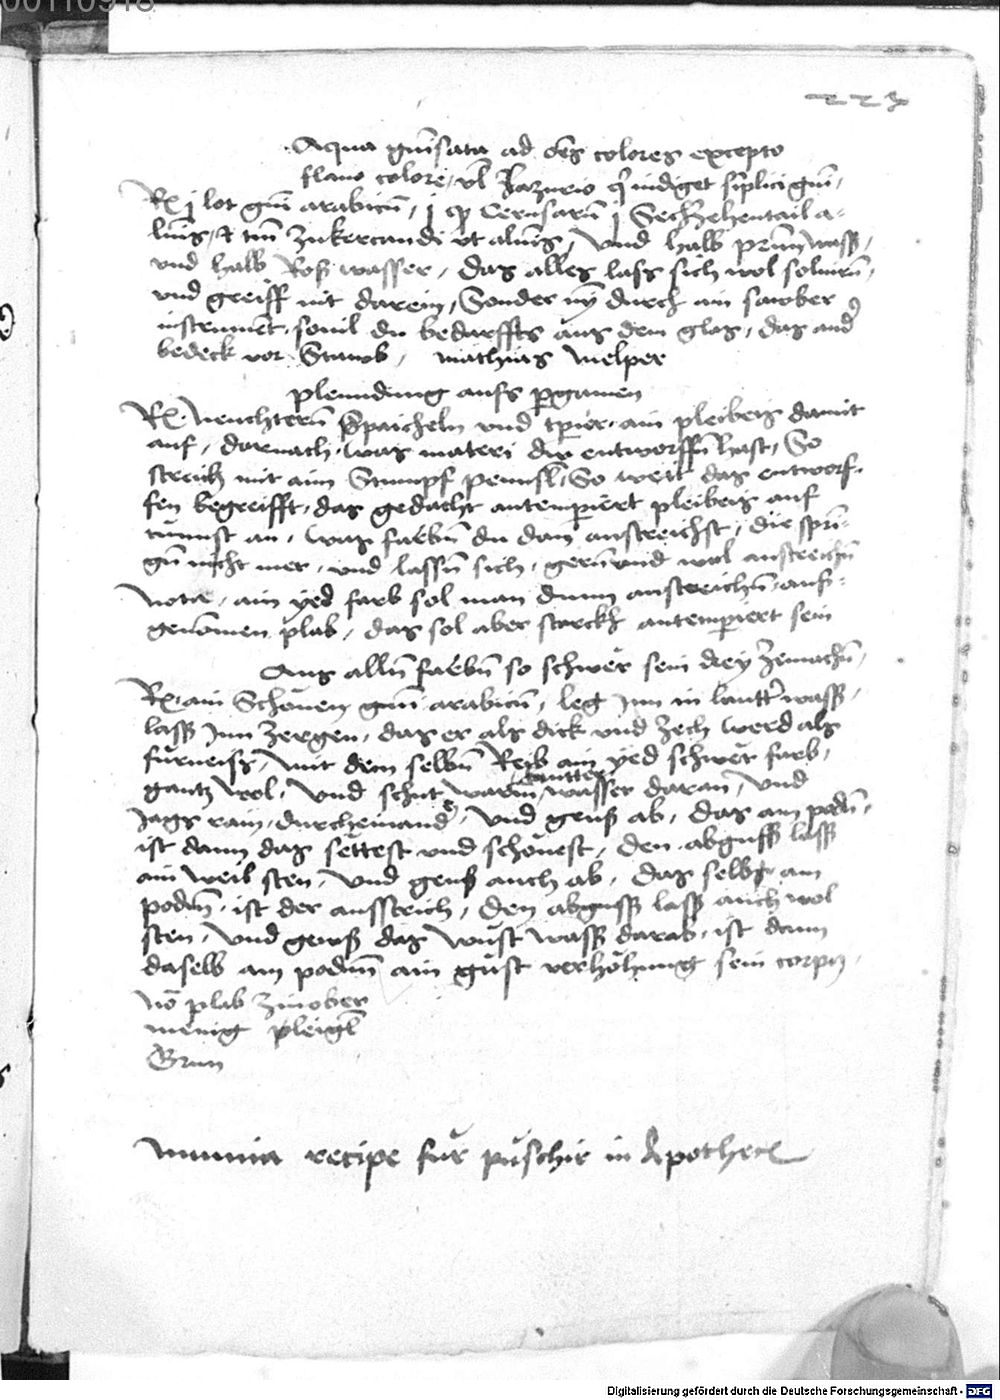 00110918
223
Aqua gum̄sata ad oēs colores excepto
flavo colore, vl̄ Lazurio q̄ indiget simplici gum̄,
Rx j lot gum̄ arabicū, j Cerusarū j Sechzehentail a-
lumīs, & tm̄ Zukercandi vt alumīs, Vnd halb prunn wasß,
vnd halb Roß wasser, das alles lass sich wol soluirn̄,
vnd greiff nit darein, Sonder nÿ durch ain sawber
instrument, souil du bedarffts aus dem glas, das and̄
bedeck vor Stawb, mathias Melper
plenndung aufs pergamen
Rx Neuchtern̄ Spaicheln vnd tpier ain pleibeis damit
auf, darnach was materi du entworffn̄ hast, So
streich mit aim Stumpf pennsl̄, So weit das entworf-
fen begreifft, das gedacht antemperiert pleibeis auf
dunnst an, was farbn̄ du dan anstreichst, die sprin-
gn̄ nicht mer, vnd lassn̄ sich gern vnd wol anstreichn̄
Nota, ain yed farb sol man dunn anstreichn̄ aus-
genomen plab, das sol aber starckh antemperiert sein
Aus alln̄ farbn̄ so schwer sein drey Zemachn̄,
Rx ain Schonen gum̄ arabicū, leg Inn in lautter wasß,
lasß Inn Zergen, das er als dick vnd Zech werd als
furneis, Mit dem selbn̄ Reib ain yed schwer farb,
gantz wol, Vnd schut warm̄ lautter wasser daran, Vnd
Jags rain durcheinand, Vnd geuß ab, das am podn̄,
ist dann das settest vnd schonest, den abgusß lasß
ain weil sten, Vnd geuß auch ab, das selbst am
podm̄, ist der ausstrich, den abgusß lasß auch wol
sten, Vnd geuß das wust wasß darab, ist dann
daselb am podm̄ ain gust verhohung sein corpus,
No plab Zinober
menig pleigl̄
Grun
Mumia recipe fur puschir in Apotheck
Digitalisierung gefördert durch die Deutsche Forschungsgemeinschaft - DFG